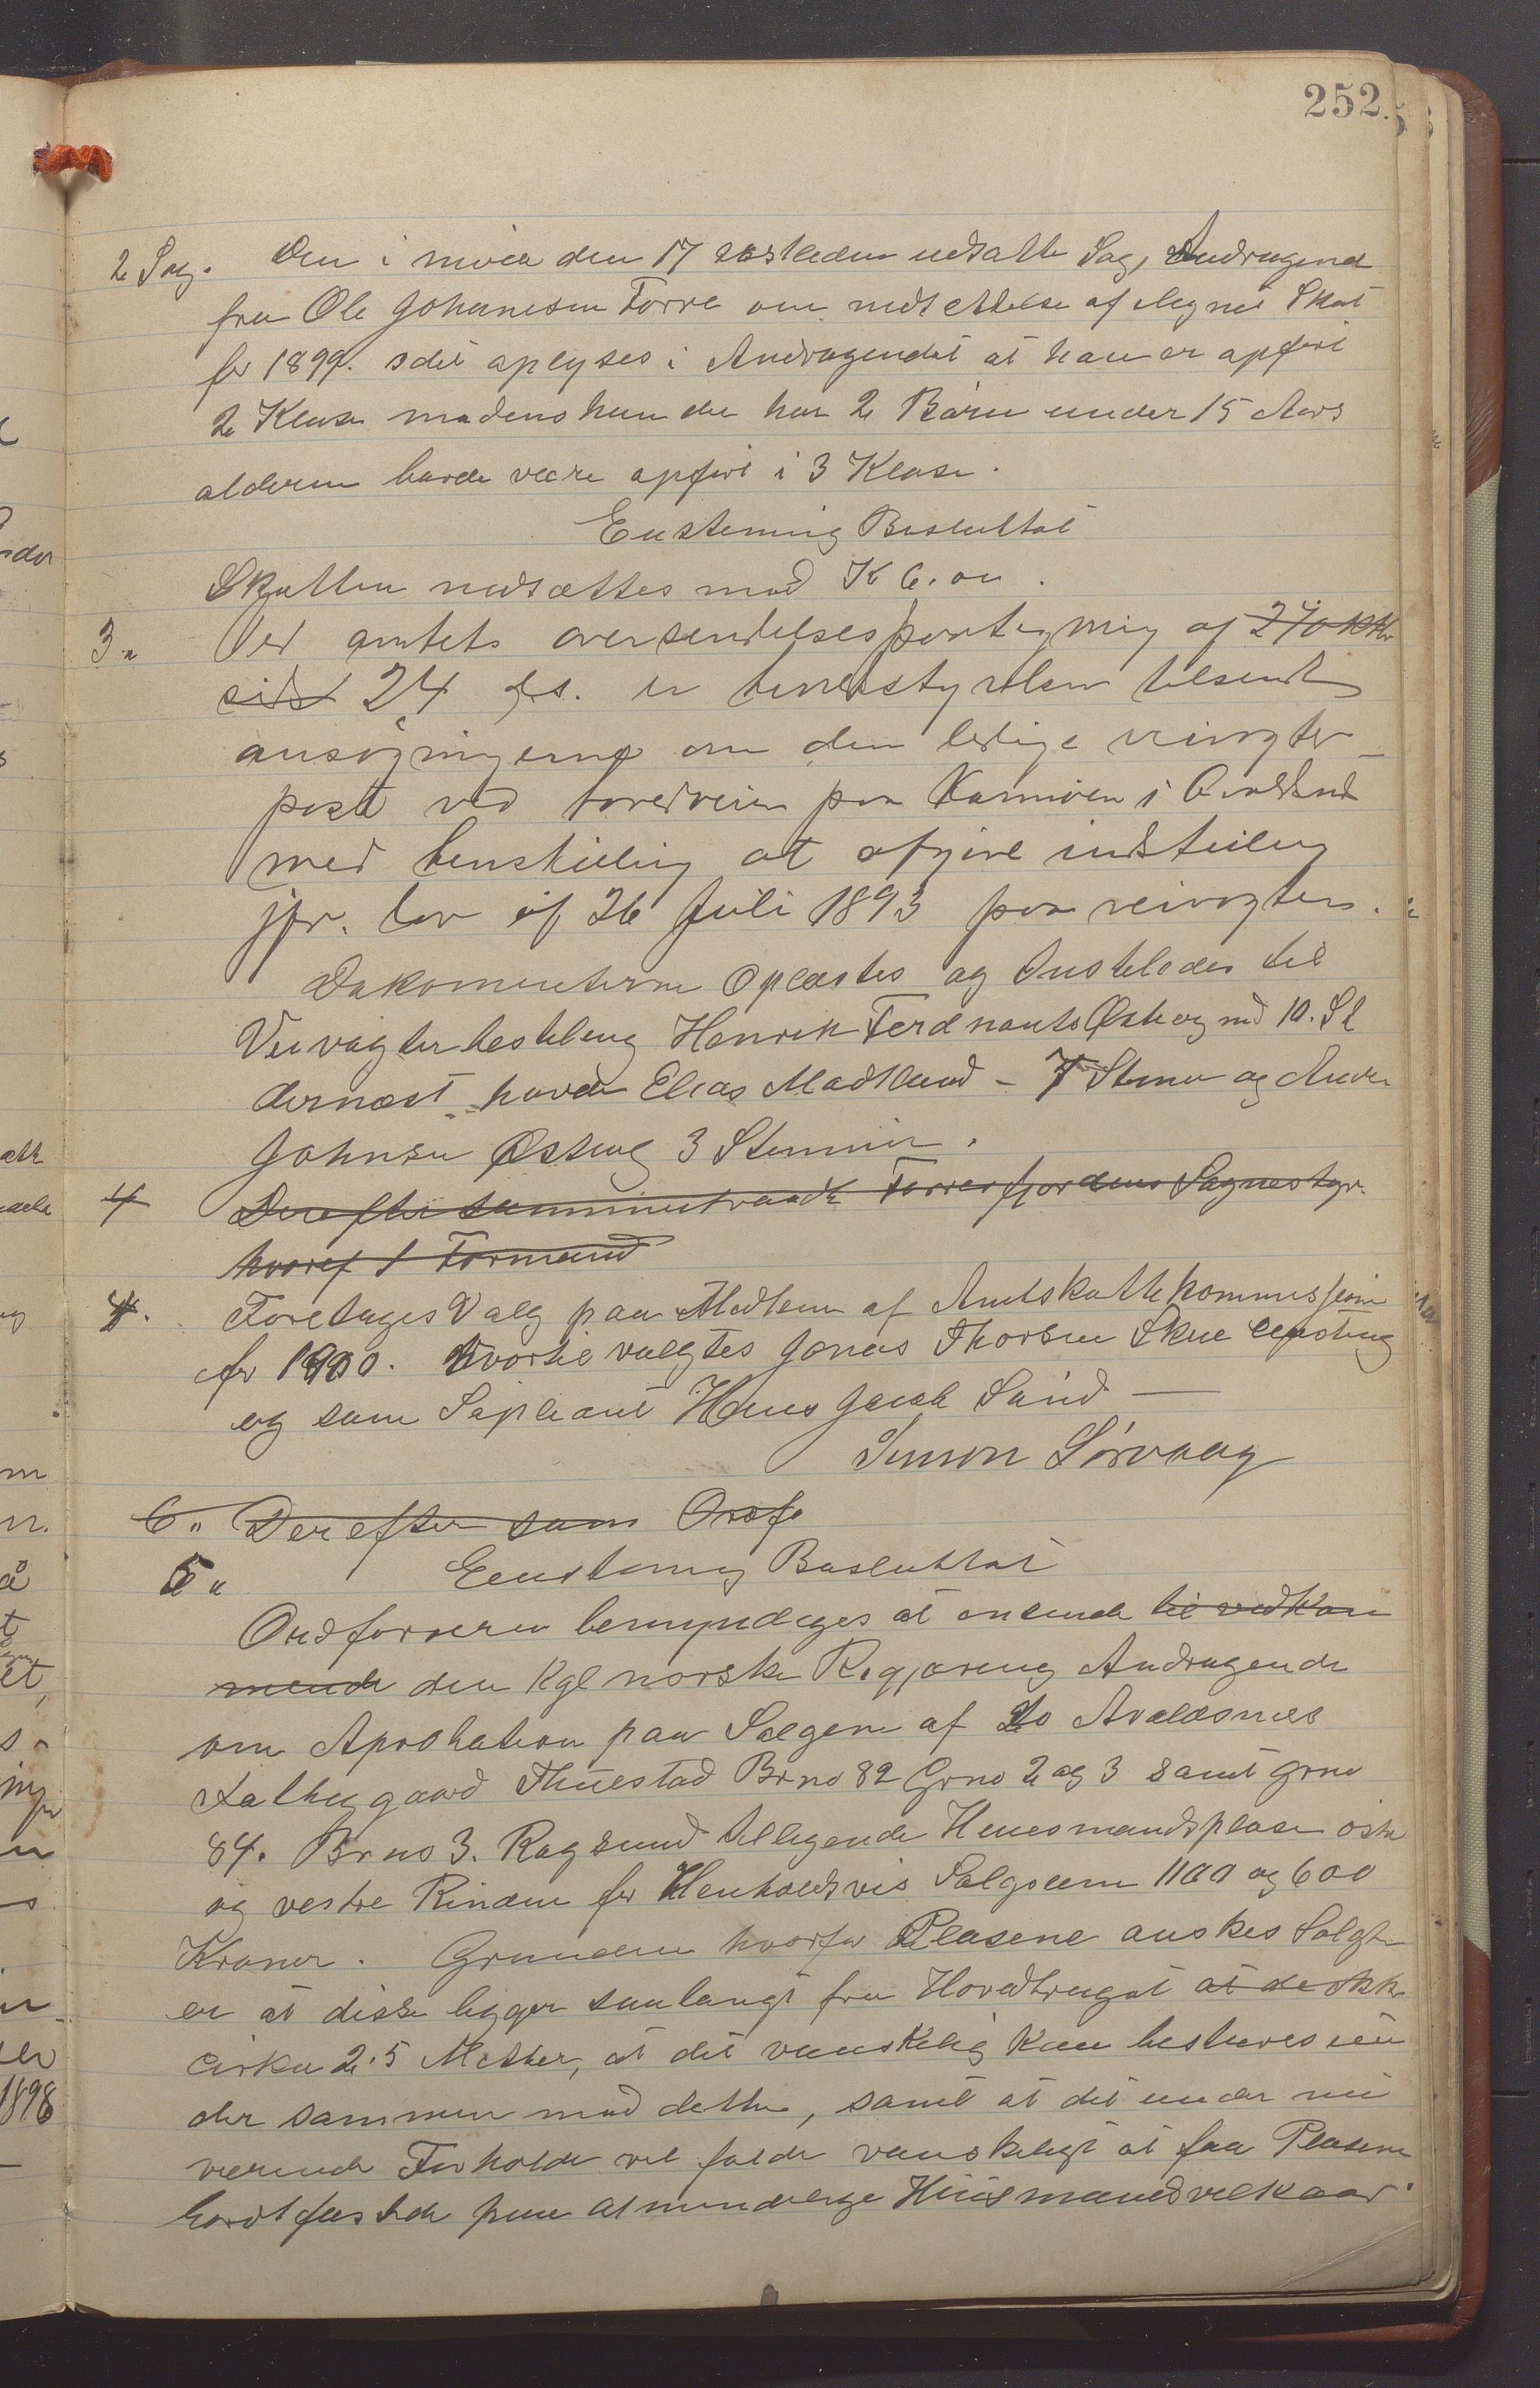 252.
2 Sag. Den i møde den 17 sistleden udsatte Sag, Andragend
fra Ole Johanesen Førre om nedsettelse af ilegnet Skat
for 1899. sdet oplyses i Andragendet at han er opført
2 Klase medens han der har 2 Børn under 15 Aars
alderen burde være opført i 3 Klase.
Enstemig Besluttet
Skatten nedsættes med K 6.00.
3" Ved amtets oversendelsespaategning af
sids 24 ds. er herredsstyrelsen tilsendt
ansøgningerne om den ledige veivogter-
post ved hovedveien paa Karmøen i Avaldsnes
med henstilling at afgive indstilling
jfr. lov af 26 Juli 1893 paa veivogter.
Dokomenterne Oplæstes og Instiledes til
Veivagterbestiling Henrik Ferdnants Østeng med 10. St
dernæst havde Elias Madland - 7 Stmer og
Johnsen Østeng 3 Stemmer.
4 Derefter sammentraadte Førresfjordens Sognestyr.
hvoraf 1 Formand
4. Foretages Valg paa Medlem af Amtskattekommissjonen
for 1900. Hvortil valgtes Jonas Thorsen Skre
og som Supleant Hans Jacob Sund —
Simon Sørvaag
6" Derefter som Ordfø
5" Eenstemig Besluttet
Ordføreren bemyndiges at ansende til vedkom
mende den Kgl norske Regjæreng Andragende
om Aprobation paa Salgene af to Avaldsnes
gaard Thuestad Brno 82 Grno 2 og 3 samt grno
84. Brno 3. Ragsund tilligende Huusmandsplase østre
og vestre Rindene for Henholdsvis Salgssum 1100 og 600
Kroner. Grunden hvorfor Plasene ønskes Solgt
er at disse ligger saa langt fra Hovedbruget at de ikke
cirka 2.5 Metter, at det vanskelig kan bestieres
der sammen med dette, samt at det under nu
værende Forholde vil falde vanskeligt at faa Plasene
bortfestede paa almindelige Huusmandsvilkaar.